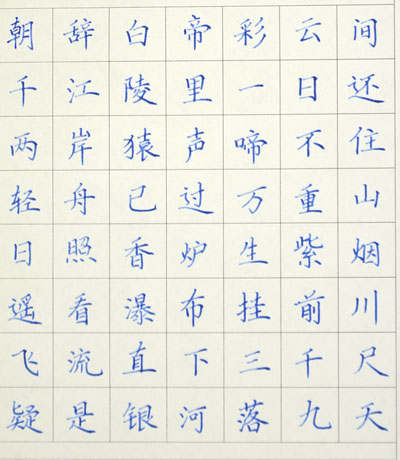 朝辞白帝彩云间
千江陵里一日还
两岸猿声啼不住
轻舟已过万重山
日照香炉生紫烟
遥看瀑布挂前川
飞流直下三千尺
疑是银河落九天